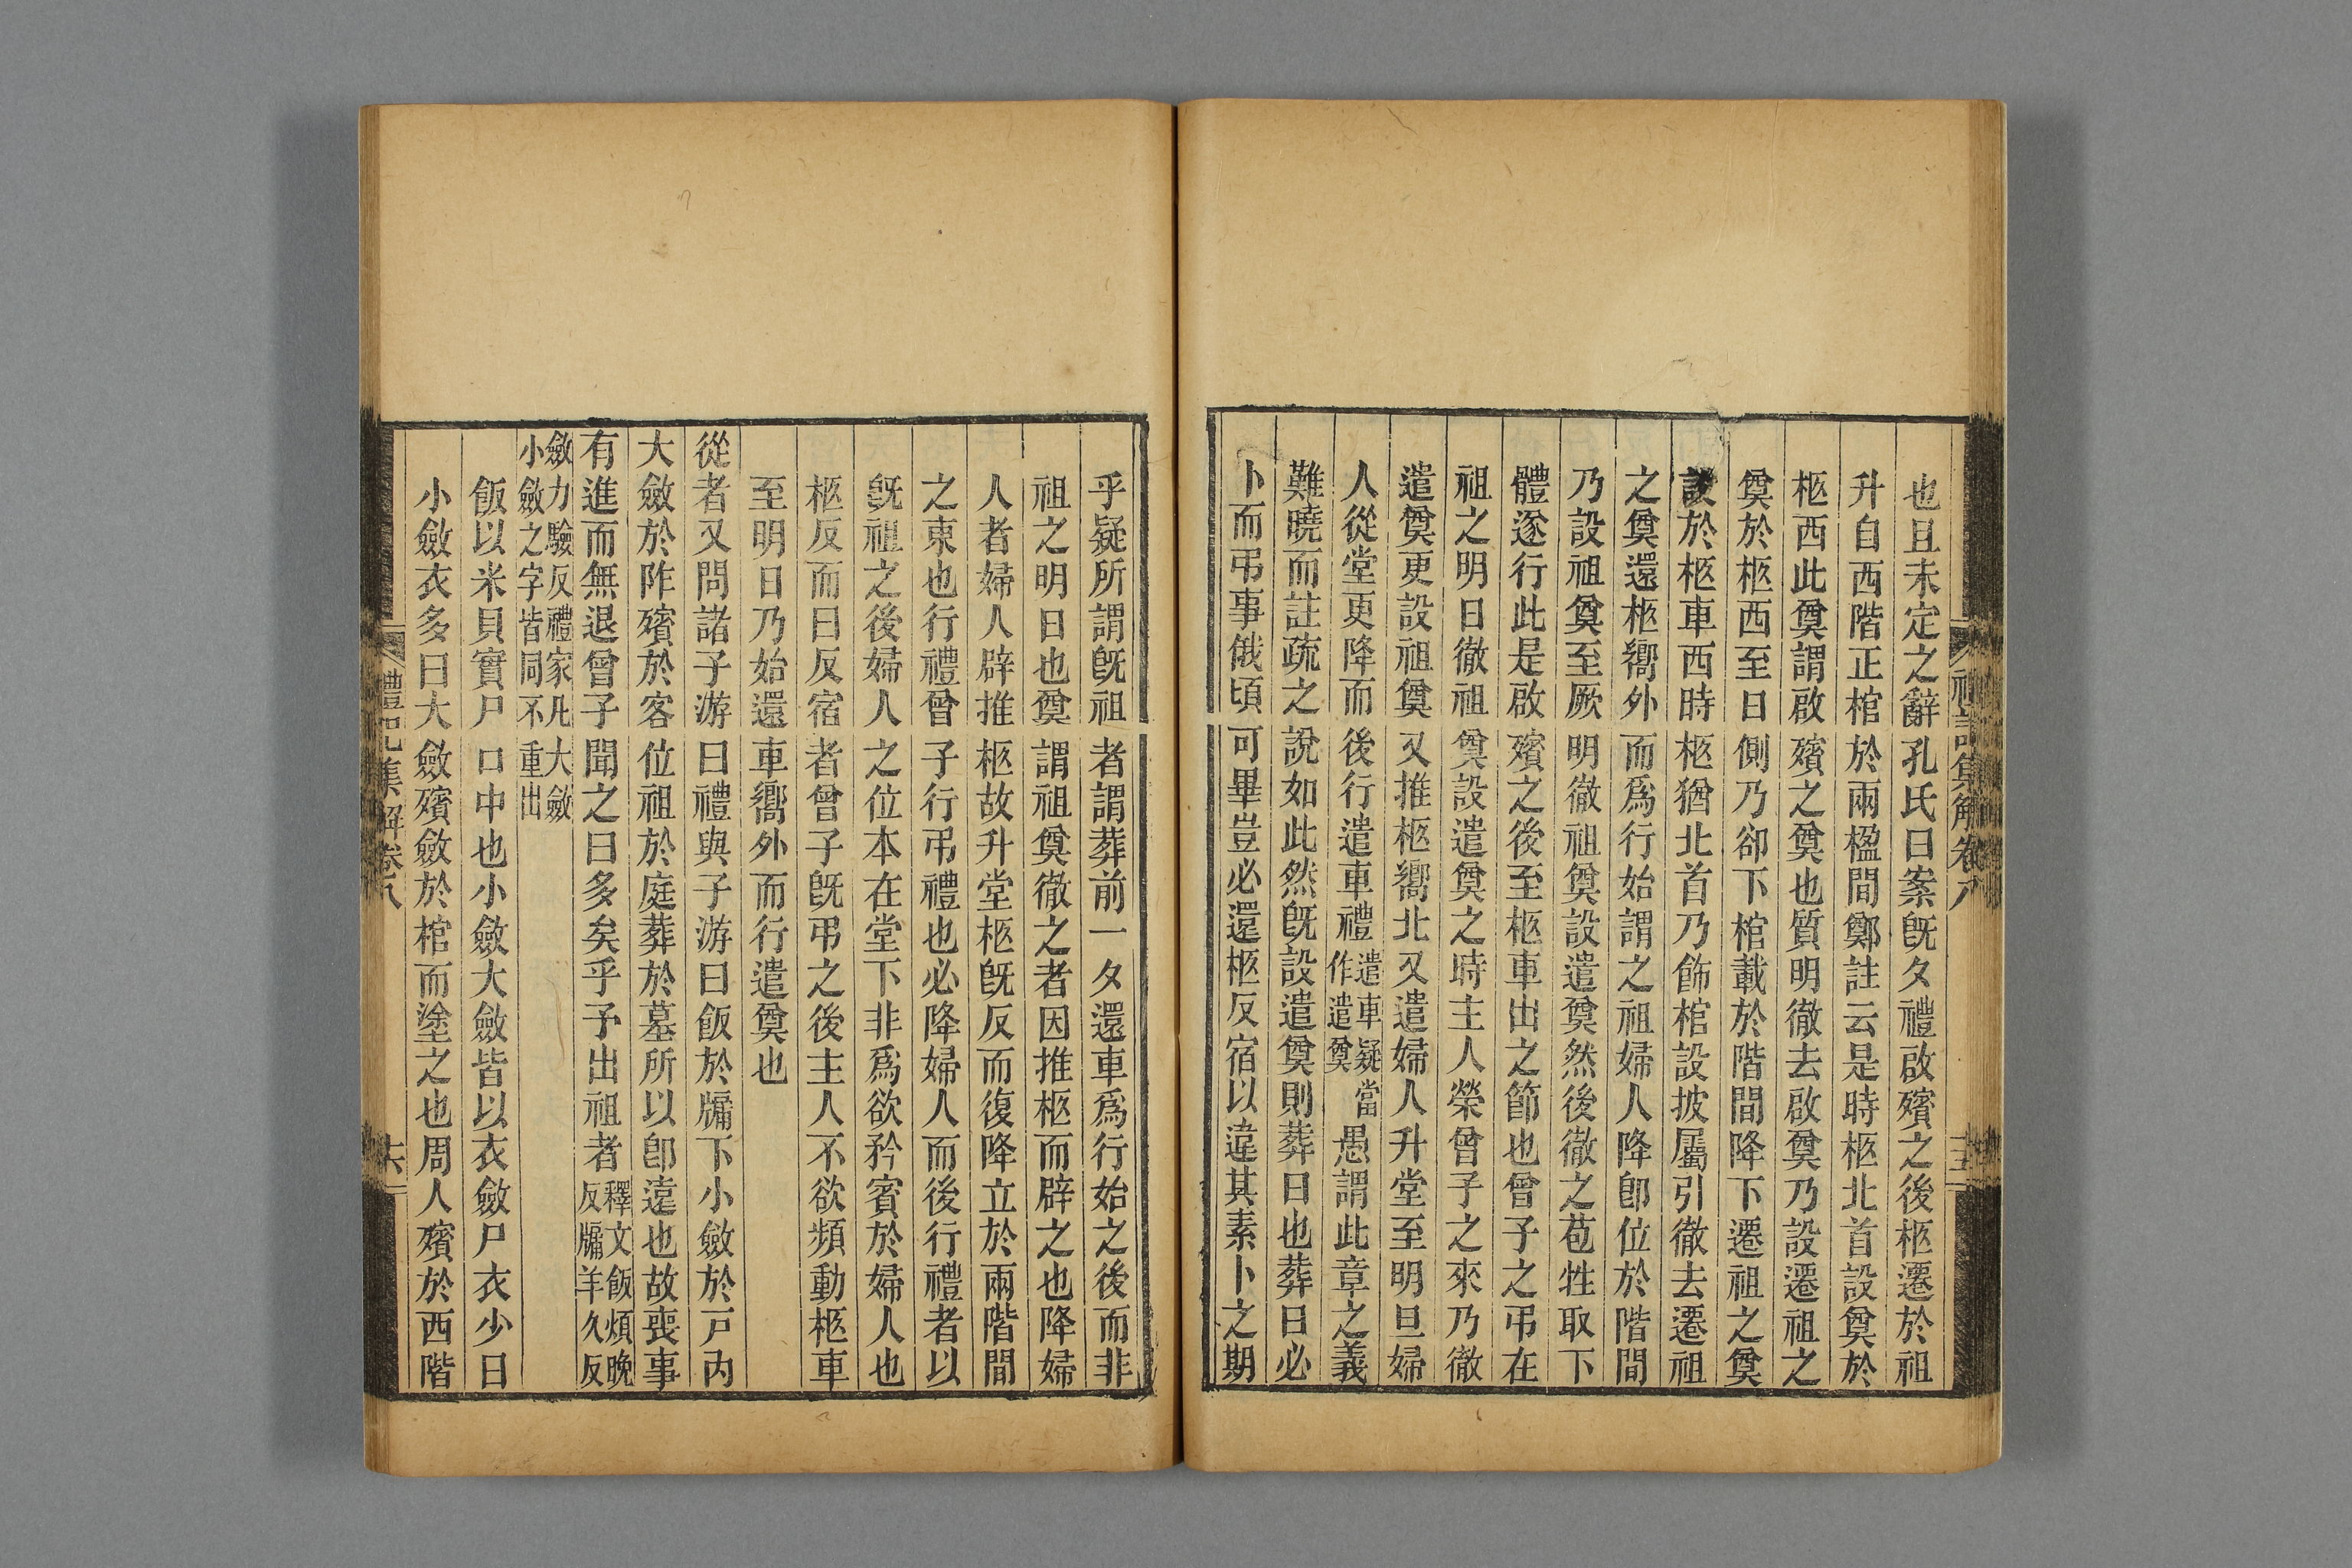 也且未定之辭孔氏曰案旣夕禮啟殯之後柩遷於祖
升自西階正棺於兩楹間鄭註云是時柩北首設奠於
柩西此奠謂啟殯之奠也質明徹去啟奠乃設遷祖之
奠於柩西至日側乃卻下棺載於階間降下遷祖之奠
設於柩車西時柩猶北首乃飾棺設披屬引徹去遷祖
之奠還柩嚮外而爲行始謂之祖婦人降卽位於階間
乃設祖奠至厥明徹祖奠設遣奠然後徹之苞牲取下
體遂行此是啟殯之後至柩車出之節也曾子之弔在
祖之明日徹祖奠設遣奠之時主人榮曾子之來乃徹
遣奠更設祖奠又推柩嚮北又遣婦人升堂至明旦婦
人從堂更降而後行遣車禮遣車疑當作遣奠愚謂此章之義
難曉而註疏之說如此然旣設遣奠則葬日也葬日必
卜而弔事俄頃可畢豈必還柩反宿以違其素卜之期
禮記集解卷八
乎疑所謂旣祖者謂葬前一夕還車爲行始之後而非
祖之明日也奠謂祖奠徹之者因推柩而辟之也降婦
人者婦人辟推柩故升堂柩旣反而復降立於兩階間
之東也行禮曾子行弔禮也必降婦人而後行禮者以
旣祖之後婦人之位本在堂下非爲欲矜賓於婦人也
柩反而曰反宿者曾子旣弔之後主人不欲頻動柩車
至明日乃始還車嚮外而行遣奠也
從者又問諸子游曰禮與子游曰飯於牖下小斂於戸內
大斂於阼殯於客位祖於庭葬於墓所以卽遠也故喪事
有進而無退曾子聞之曰多矣乎予出祖者釋文飯煩晚反牖羊久反
斂力驗反禮家凡大斂小斂之字皆同不重出
飯以米貝實尸口中也小斂大斂皆以衣斂尸衣少曰
小斂衣多曰大斂殯斂於棺而塗之也周人殯於西階
禮記集解卷八